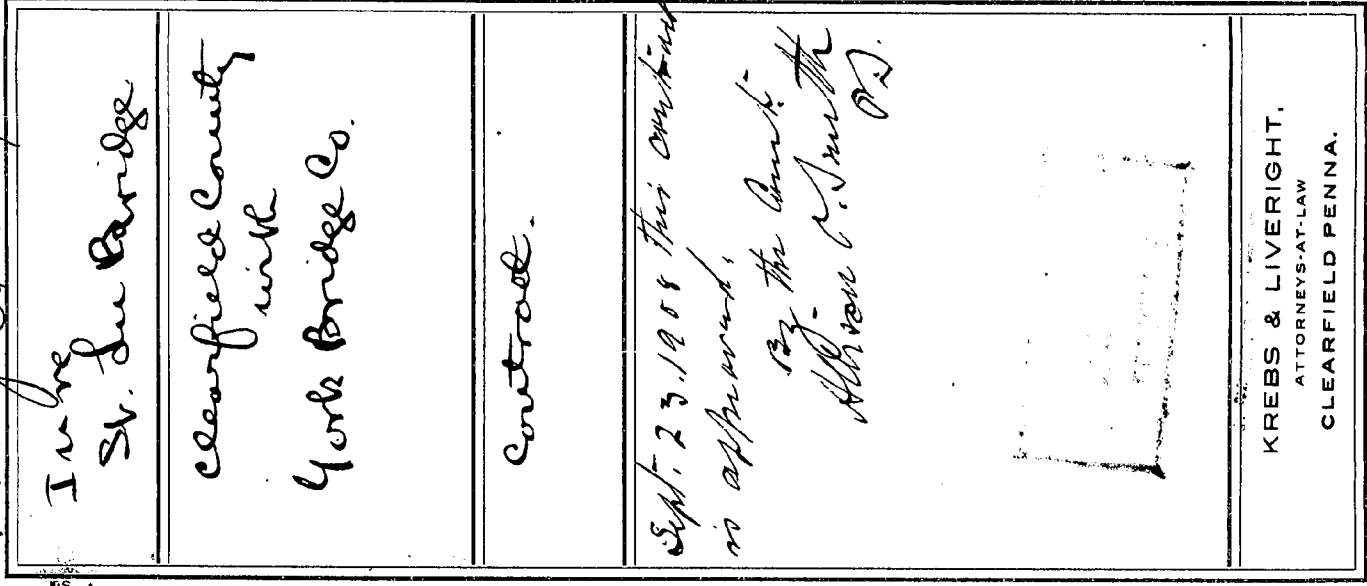 In re
St. Lu Bridge
Clearfield County
with
York Bridge Co.
Contract.
Sept. 23. 1908 this contract
is approved.
By the Court
C. Smith
P.J.
KREBS & LIVERIGHT,
ATTORNEYS-AT-LAW
CLEARFIELD PENNA.